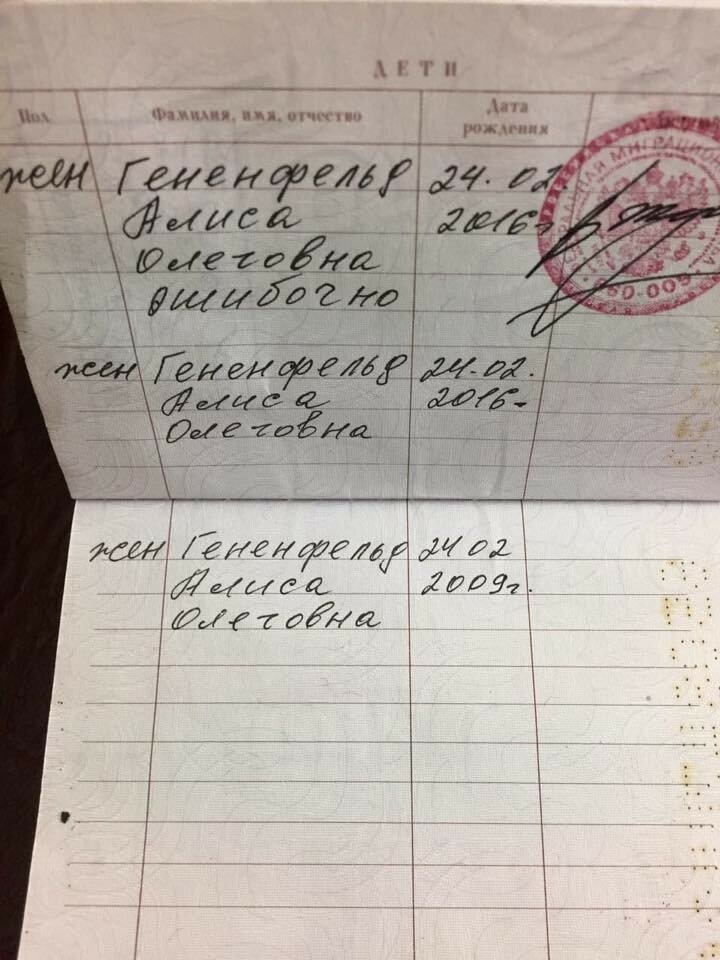 ДЕТИ
Пол Фамилия, имя, отчество Дата рождения
жен Гененфельд 24.02.
Алиса 2016г
Олеговна
ошибочно
жен Гененфельд 24.02.
Алиса 2016г
Олеговна
жен Гененфельд 24 02
Алиса 2009г.
Олеговна